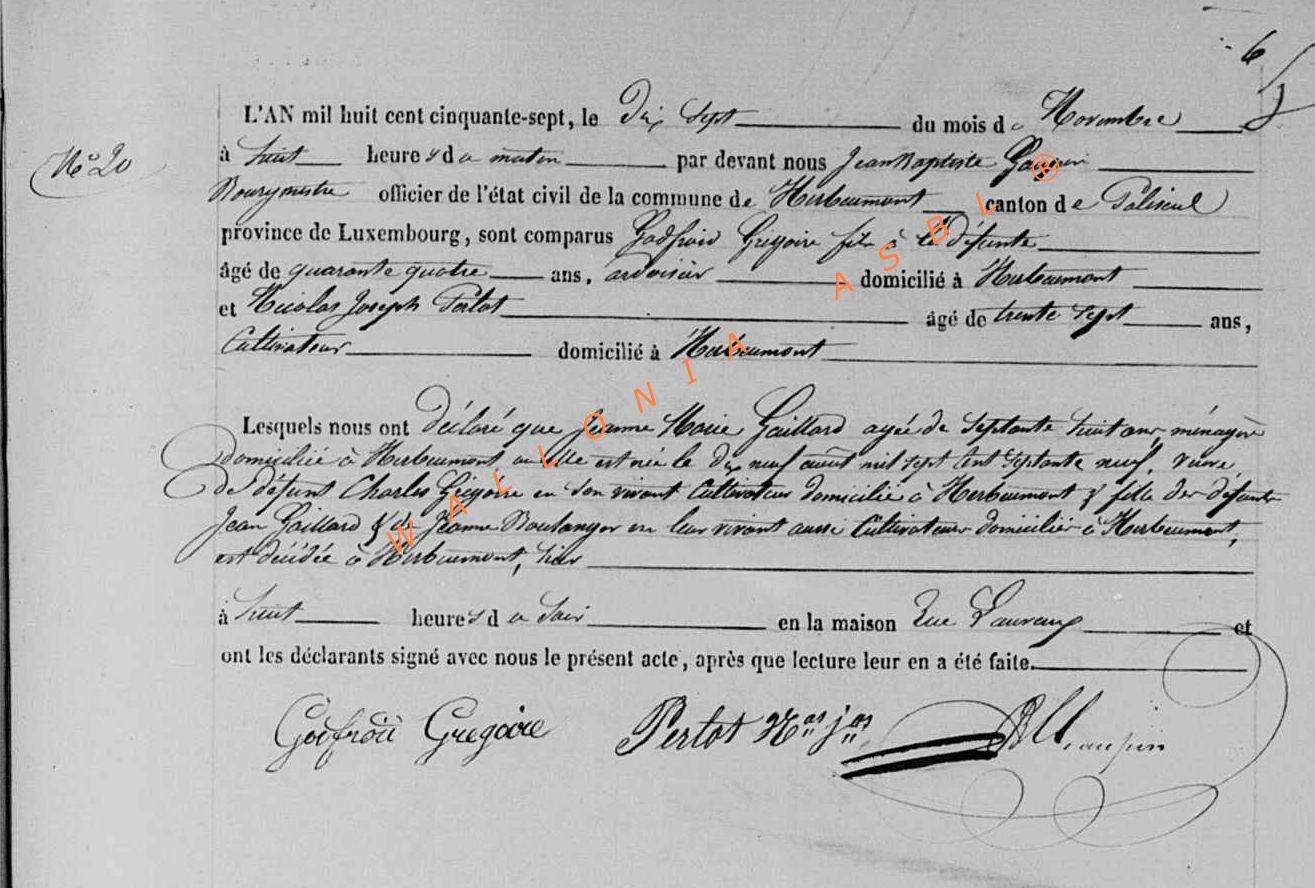 6
L'AN mil huit cent cinquante-sept, le Dix Sept du mois de Novembre
N° 20
à huit heures du matin par devant nous Jean Baptiste
Bourgmestre officier de l'état civil de la commune de Herbeumont canton de Paliseul
province de Luxembourg, sont comparus Godfroid Gregoire fils à la défunte
âgé de quarante quatre ans, ardoisier domicilié à Herbeumont
et Nicolas Joseph Pertot âgé de trente sept ans,
Cultivateur domicilié à Herbeumont
Lesquels nous ont déclaré que Jeanne Marie Gaillard agée de Septante huit ans, ménagère
domiciliée à Herbeumont où elle est née le dix neuf août mil sept cent septante neuf, veuve
de défunt Charles Grégoire en son vivant Cultivateur domicilié à Herbeumont & fille des défunts
Jean Gaillard & de Jeanne Boulanger en leur vivant aussi Cultivateurs domiciliés à Herbeumont,
est décédée à Herbeumont, hier
à huit heures du Soir en la maison Rue et
ont les déclarants signé avec nous le présent acte, après que lecture leur en a été faite.
Godfroid Gregoire Pertot Nas jos
WALLONIA ASBL ®